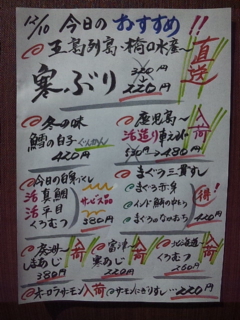 12/10 今日のおすすめ!!
五島列島・橋口水産〜 直送
寒ぶり 320円 220円
冬の味
鱈の白子 ぐんかん
420円
鹿児島〜 入荷
活〆車えび
580円→480円
今日の白身づくし
活 真鯛
活 平目
くろむつ
サービス品
380円
まぐろ三貫すし
まぐろ赤身
インド鮪の中とろ
得!
420円
入荷
しまあじ
380円
宮津〜 入荷
寒あじ
220円
北海道〜 入荷
オーロラサーモン入荷 サーモンにぎりすし…220円